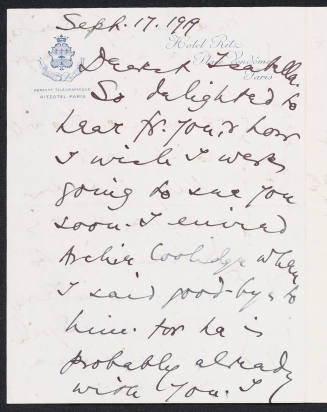 Sept. 17. 1919
Hôtel Ritz
Place Vendôme
Paris
ADRESSE TÉLÉGRAPHIQUE
RITZOTEL-PARIS
Dearest
So delighted to
hear fr. you, & how
I wish I were
going to see you
soon. I envied
Archie Coolidge when
I said good-bye to
him. for he is
probably already
with you. I